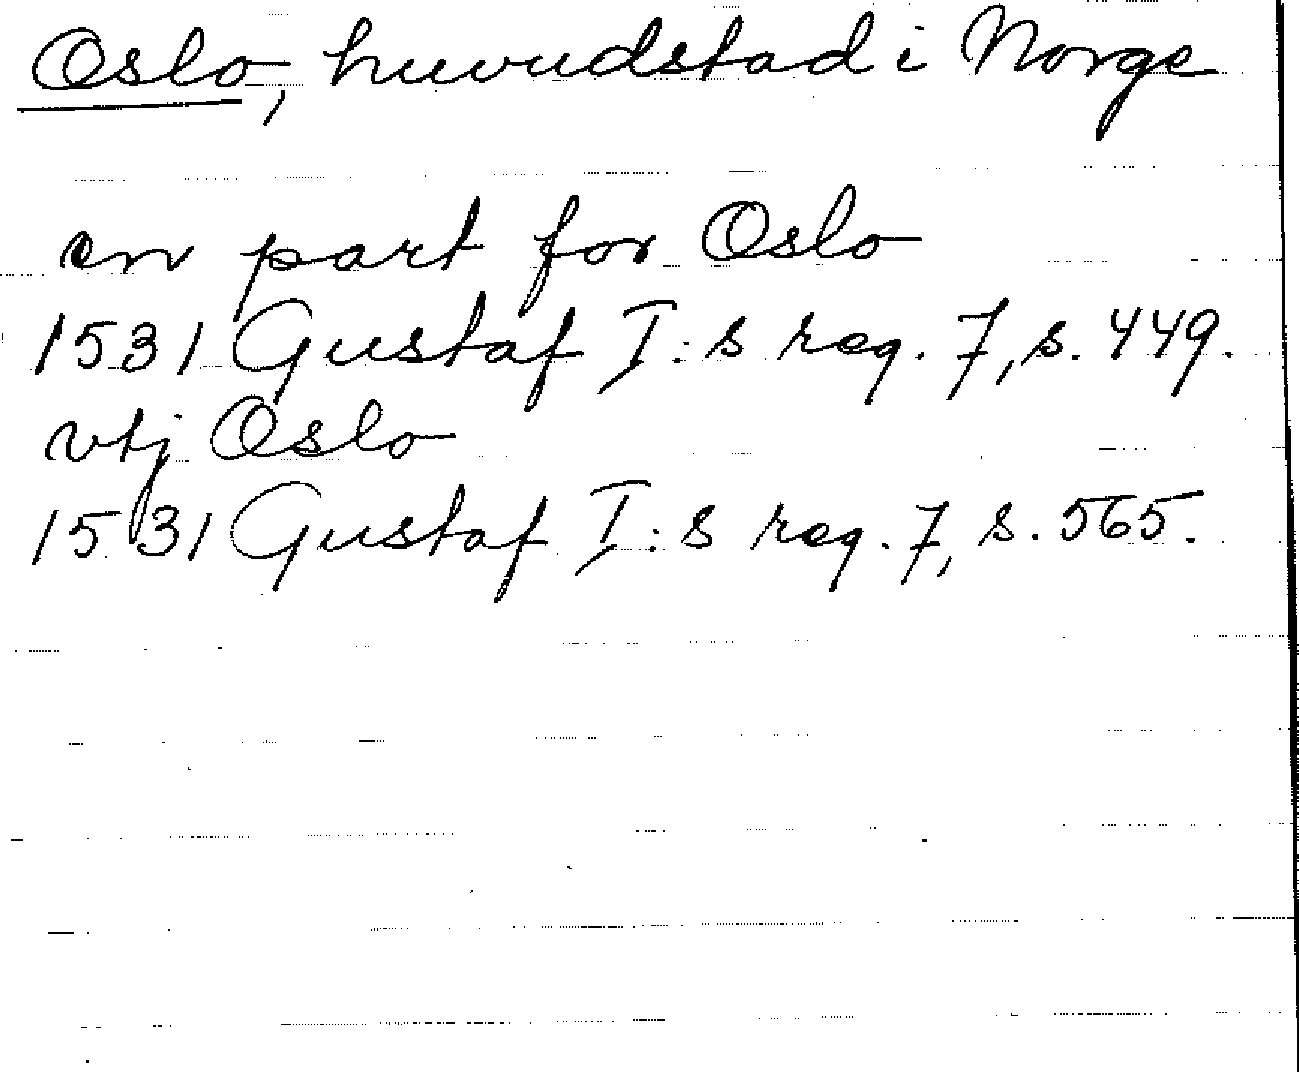 Oslo, huvudstad i Norge
en part for Oslo
1531 Gustaf I:s reg. 7, s. 449.
vtj Oslo
1531 Gustaf I:s reg. 7, s. 565.